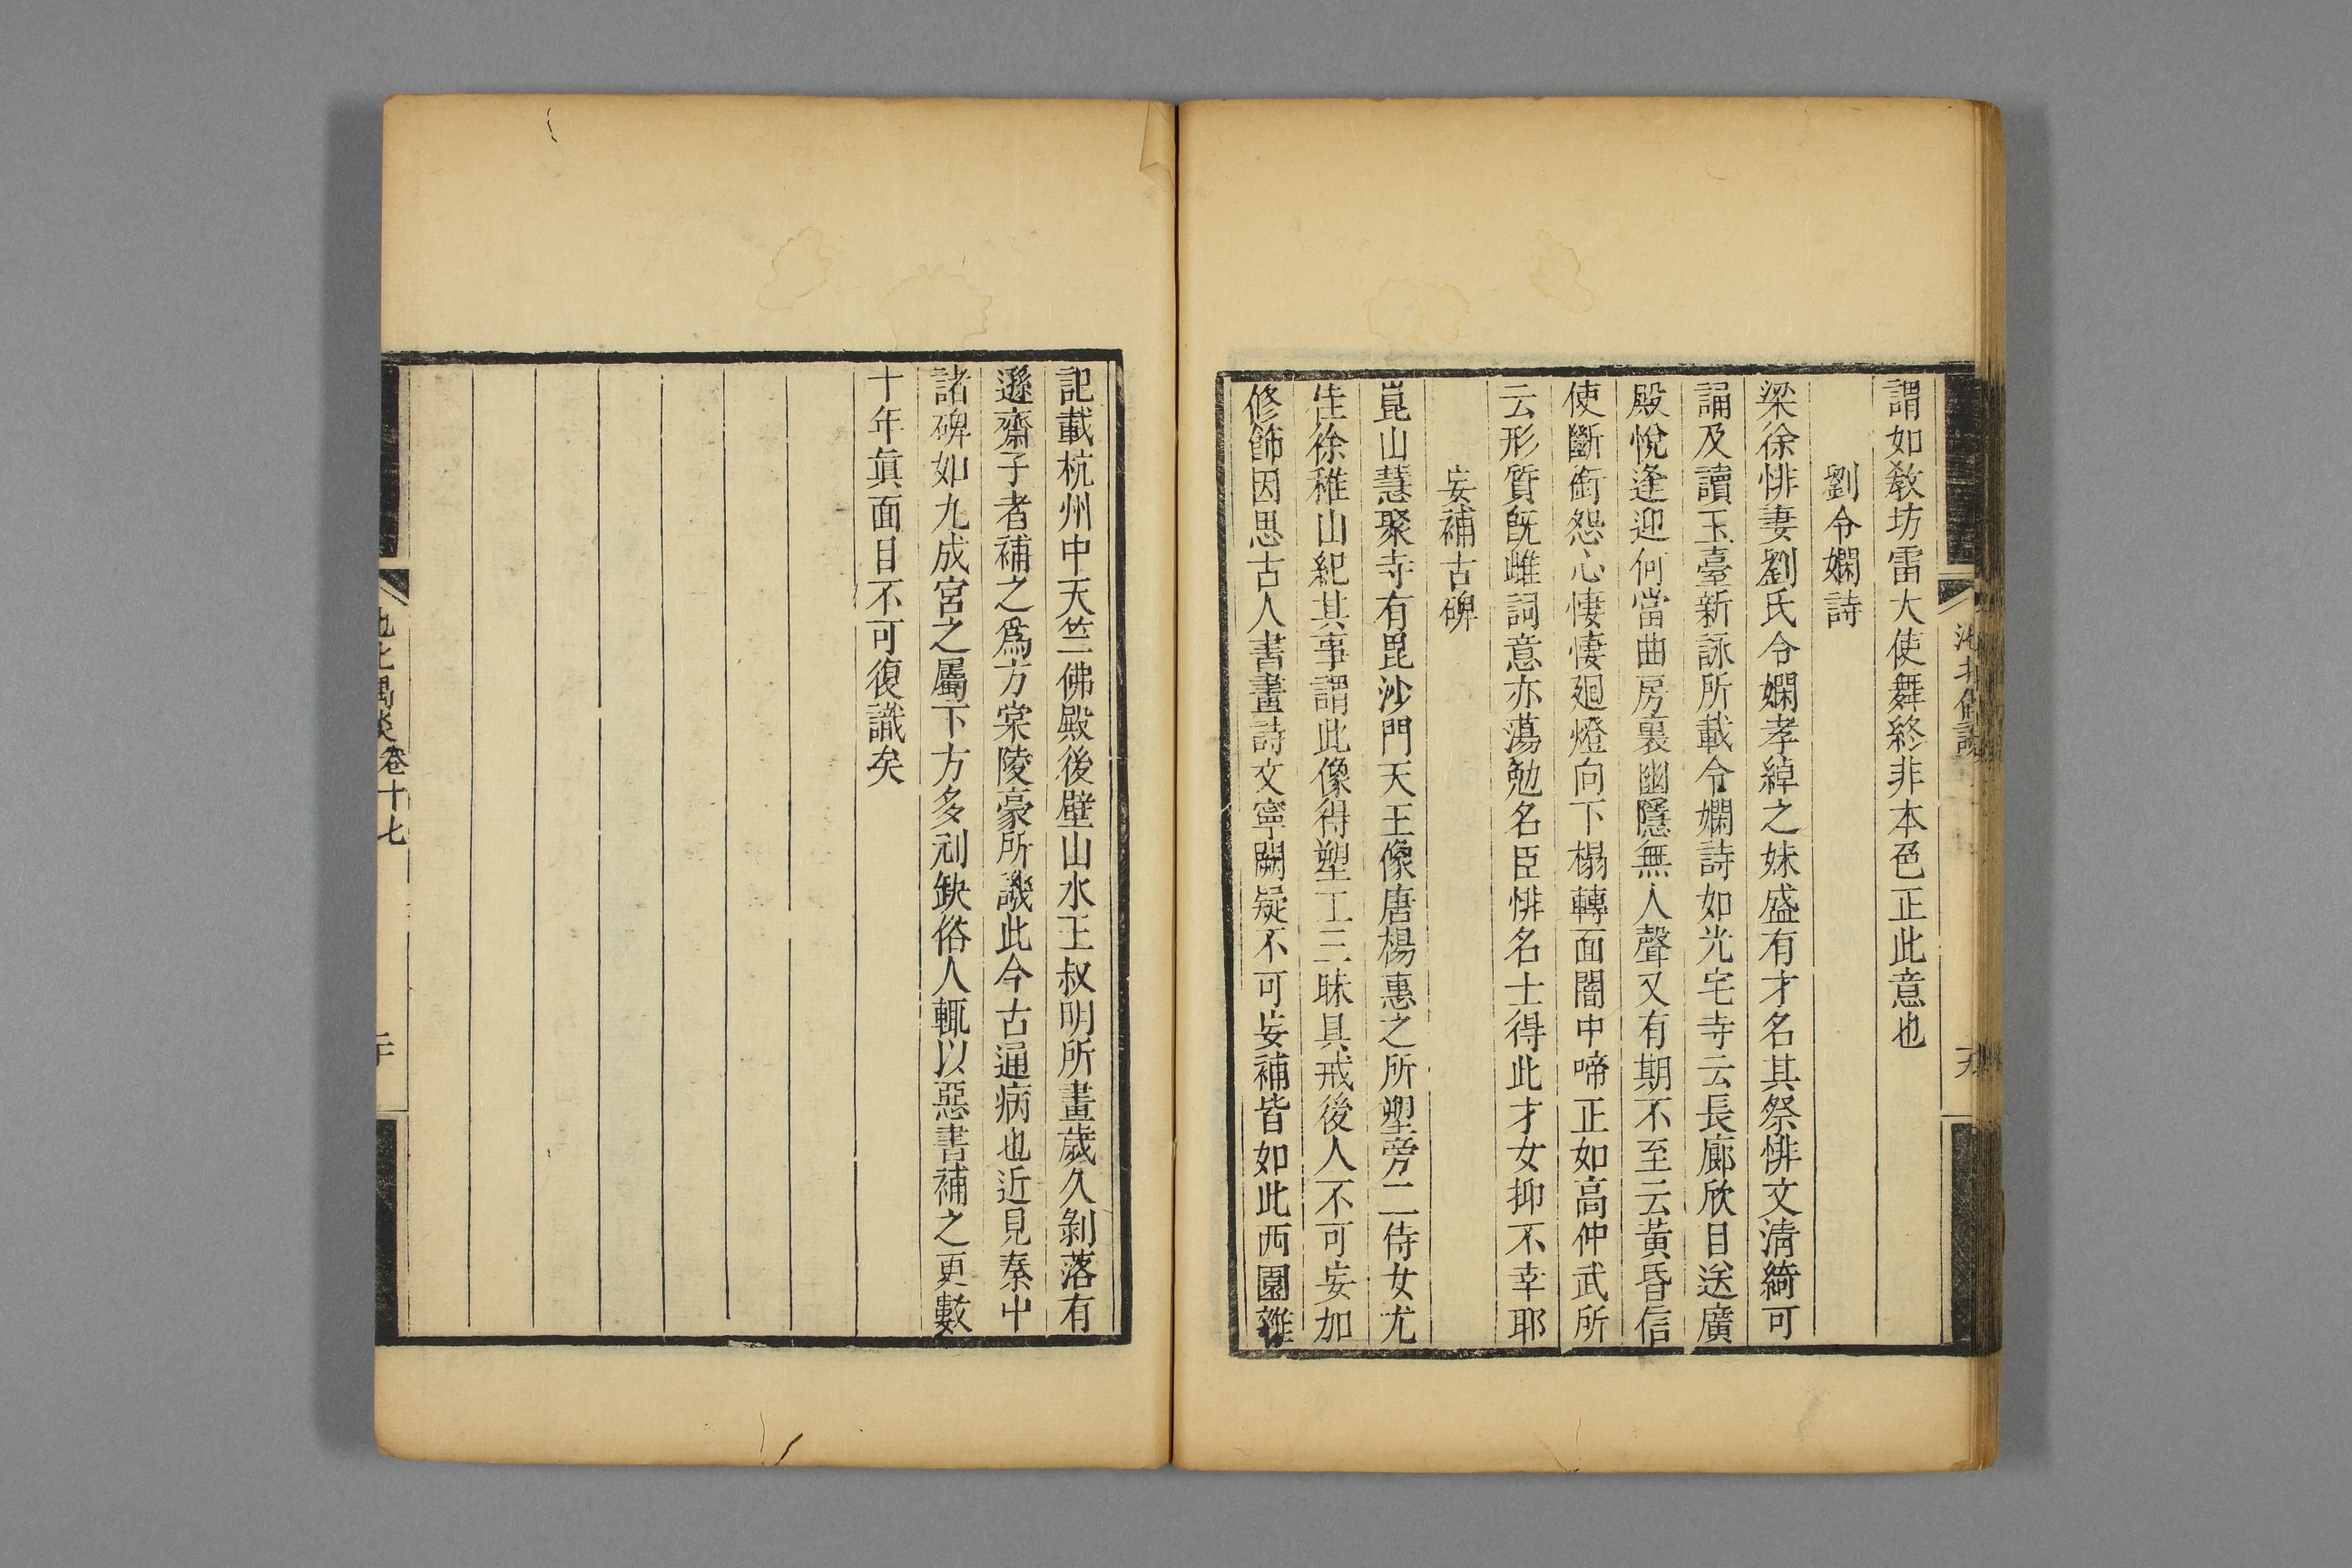 謂如敎坊雷大使舞終非本色正此意也
劉令嫻詩
梁徐悱妻劉氏令嫻孝綽之妹盛有才名其祭悱文淸綺可
誦及讀玉臺新詠所載令嫻詩如光宅寺云長廊欣目送廣
殿悅逢迎何當曲房裏幽隱無人聲又有期不至云黃昏信
使斷銜怨心悽悽廻燈向下榻轉面闇中啼正如高仲武所
云形質旣雌詞意亦蕩勉名臣悱名士得此才女抑不幸耶
妄補古碑
崑山慧聚寺有毘沙門天王像唐楊惠之所塑旁二侍女尤
佳徐稚山紀其事謂此像得塑工三昧具戒後人不可妄加
修飾因思古人書畫詩文寧闕疑不可妄補皆如此西園雜
記載杭州中天竺佛殿後壁山水王叔明所畫歲久剝落有
遜齋子者補之爲方棠陵豪所譏此今古通病也近見秦中
諸碑如九成宮之屬下方多刓缺俗人輒以惡書補之更數
十年眞面目不可復識矣
池北偶談卷十七
二十